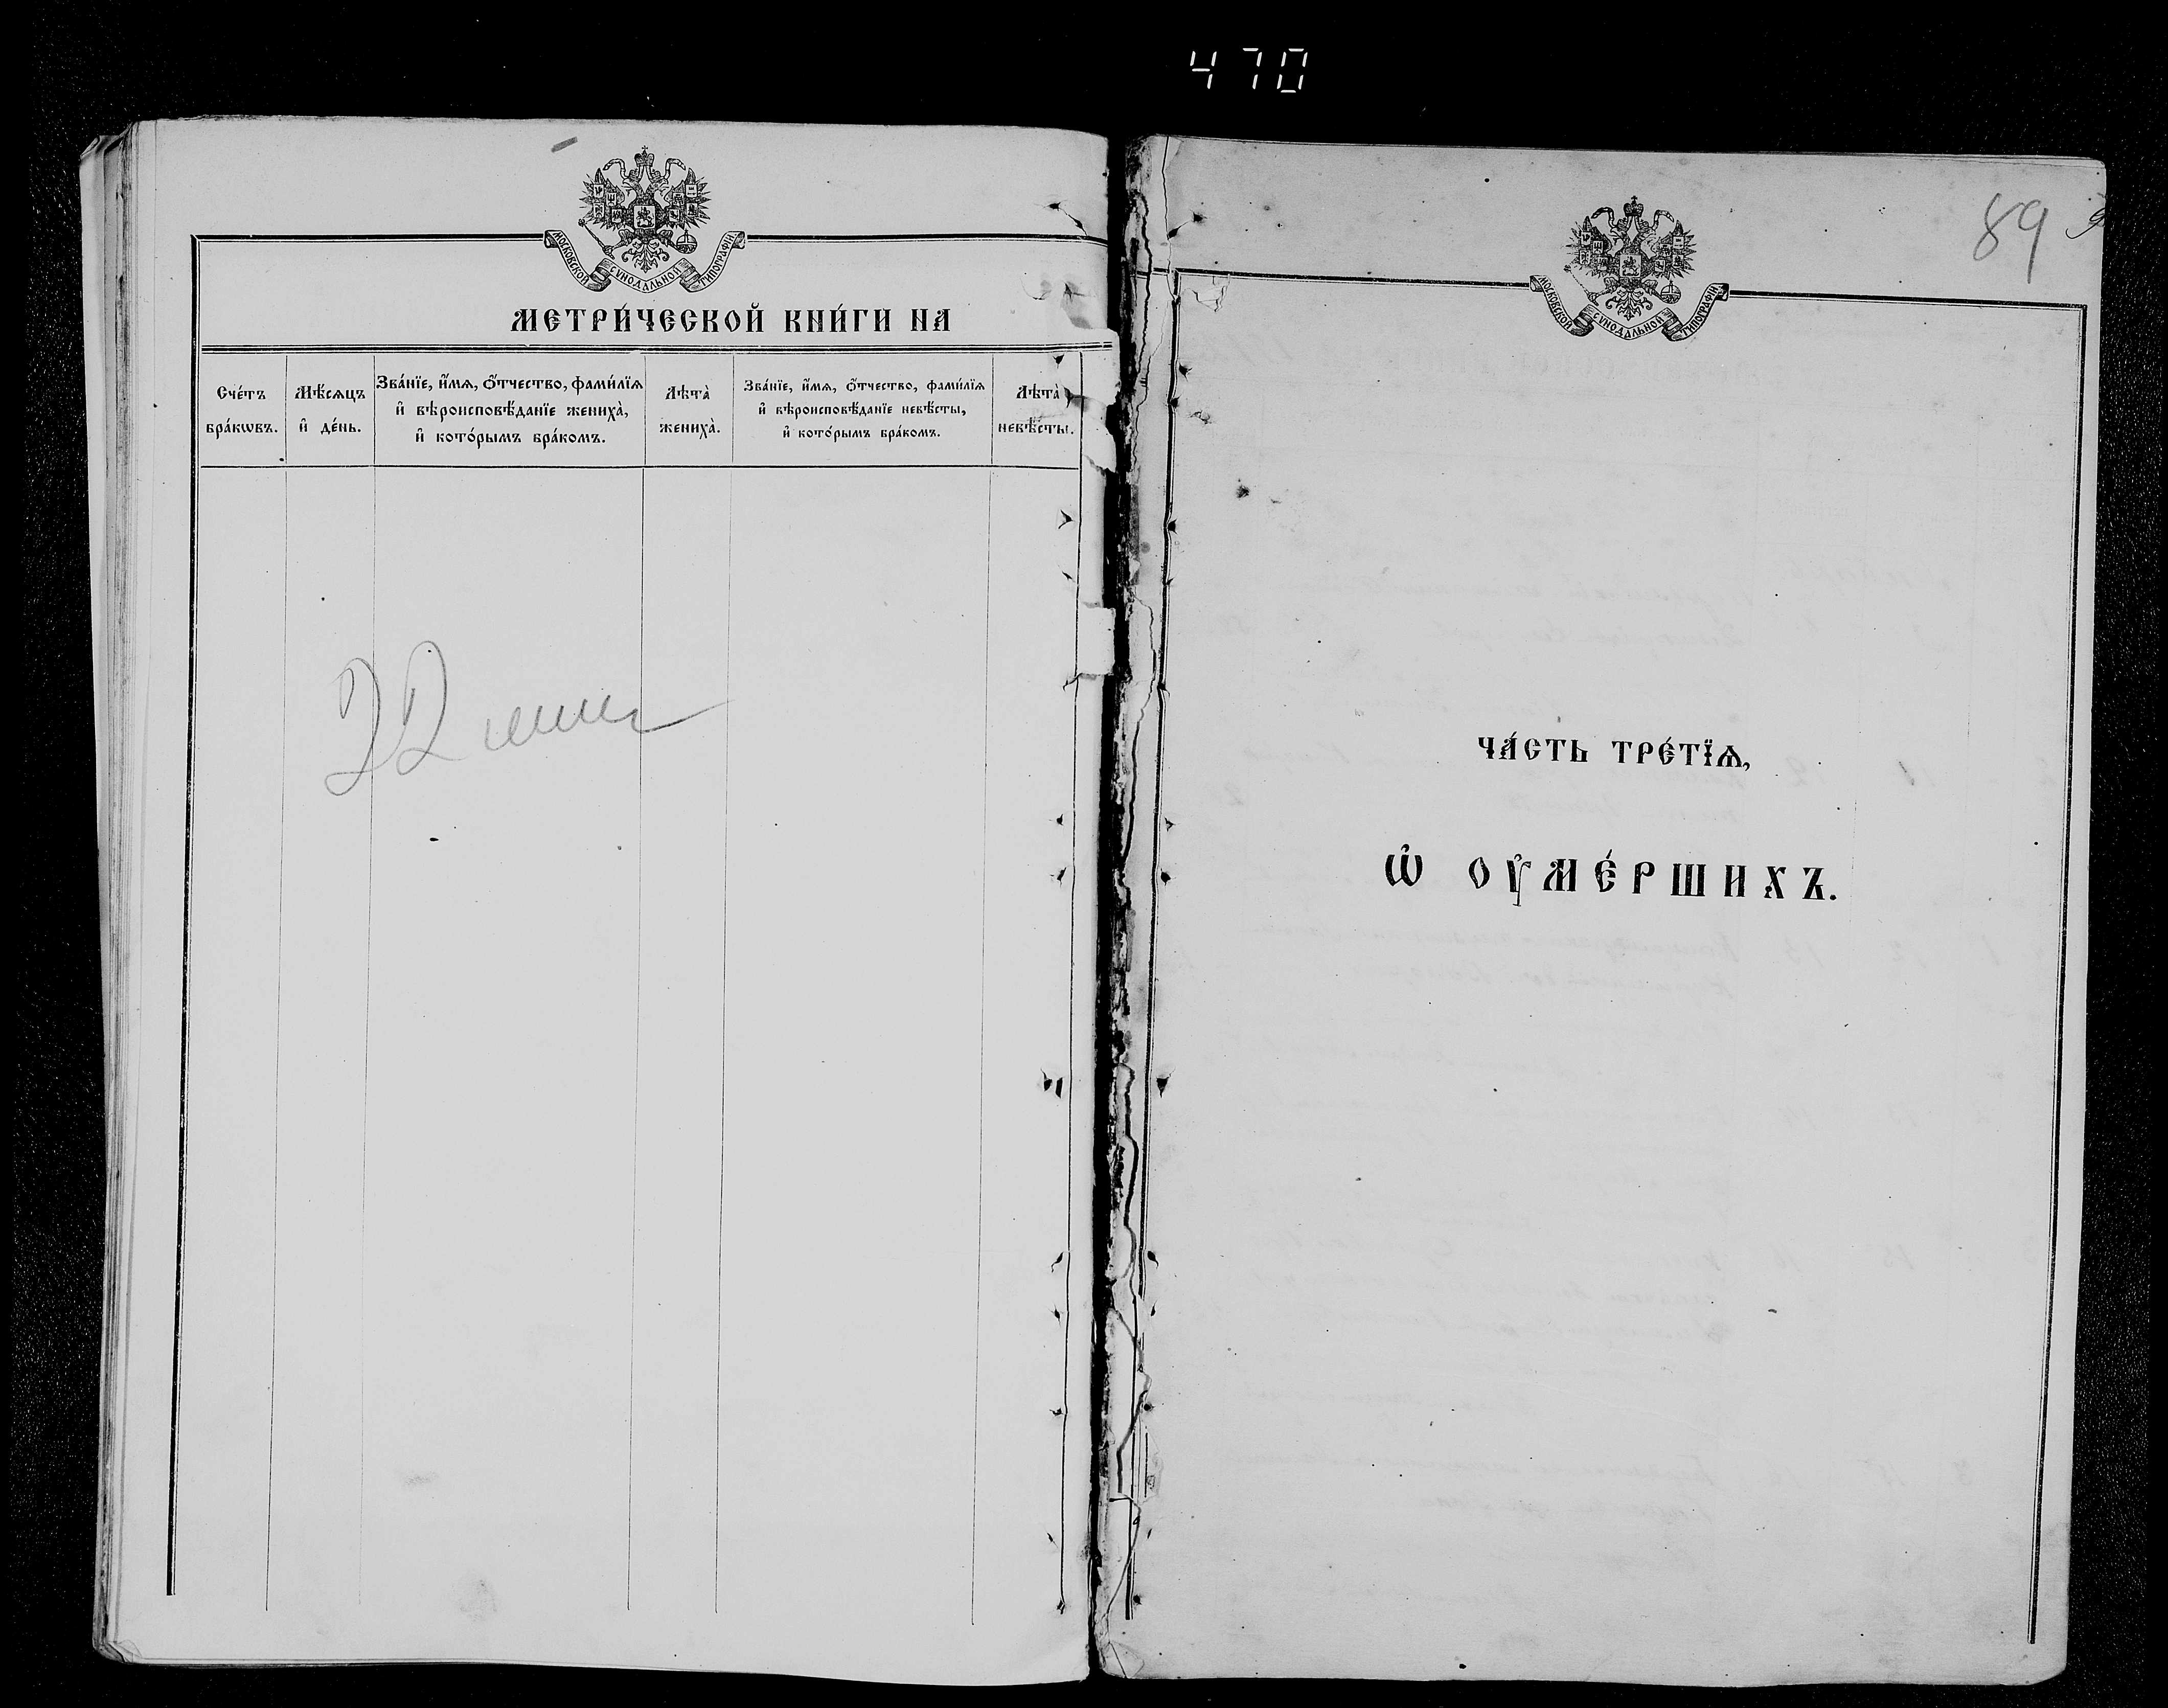 470
МОСКОВСКОЙ СѴНОДАЛЬНОЙ ТИПОГРАФІИ
МЕТРИ́ЧЕСКОЙ КНИ́ГИ НА
Сче́тъ бра́кѡвъ.
Мѣ́сѧцъ и҆ де́нь.
Зва́нїе, и҆́мѧ, ѻ҆́тчество, фами́лїѧ
и҆ вѣроисповѣ́данїе жениха̀,
и҆ кото́рымъ бра́комъ.
Лѣта̀ жениха̀.
Зва́нїе, и҆́мѧ, ѻ҆́тчество, фами́лїѧ
и҆ вѣроисповѣ́данїе невѣ́сты,
и҆ кото́рымъ бра́комъ.
Лѣта̀ невѣ́сты.
89
МОСКОВСКОЙ СѴНОДАЛЬНОЙ ТИПОГРАФІИ
ЧА́СТЬ ТРЕ́ТЇѦ,
Ѡ҆ ОУ҆МЕ́РШИХЪ.